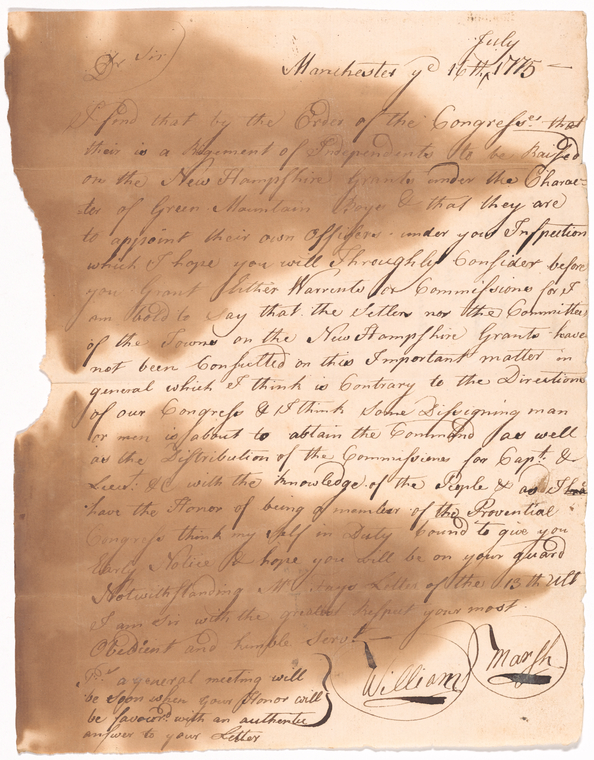 July
Dr Sir
Manchester ye 16th 1775
I find that by the Order of the Congress es that
their is a Rigement of Independents to be Raised
on the New Hampshire Grants under the Charac=
ter of Green Mountain Boys & that they are
to appoint their own Officers under your Inspection
which I hope you will Throughly Consider before
you Grant Either Warrents or Commissions for I
am bold to Say that the Setlers nor the Committee
of the Towns on the New Hampshire Grants have
not been Consulted on this Important matter in
general which I think is Contrary to the Directions
of our Congress & I think Some Dissigning man
or men is about to obtain the Command as well
as the Distribution of the Commissions for Capt. &
Lieut. &C with the knowledge of the People & as I
have the Honor of being a member of the Provential
Congress think my Self in Duty bound to give you
Early Notice & hope you will be on your guard
Notwithstanding Mr Letter of the 13th Ult
I am Sir with the greatest Respect your most
Obedient and humble Servt.
William Marsh
Ps. a general meeting will
be Soon when your Honor will
be favourd with an authentic
answer to your Letter